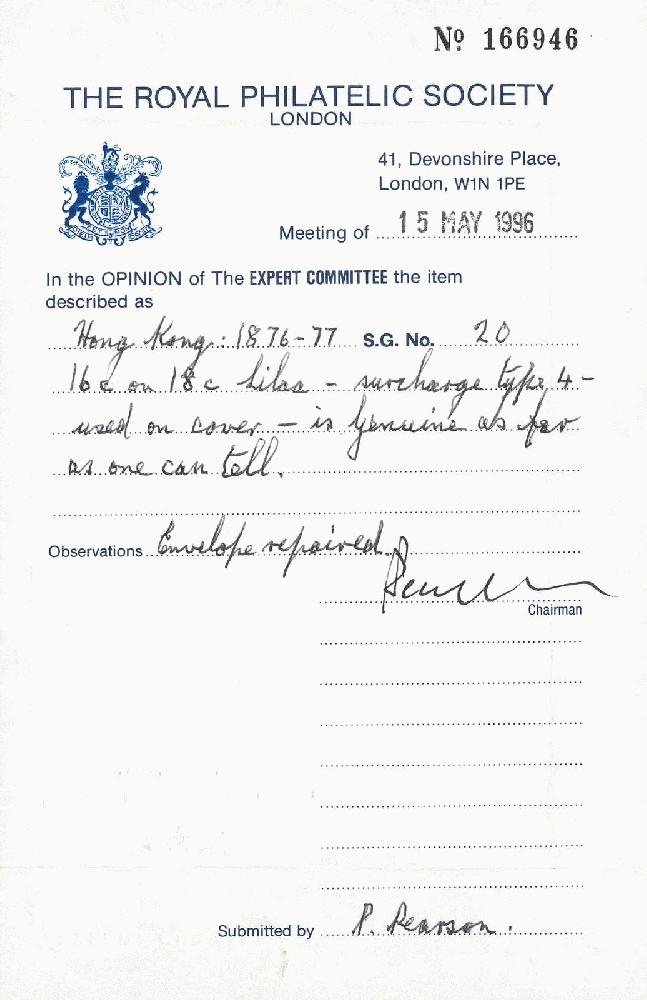 Nº 166946
THE ROYAL PHILATELIC SOCIETY
LONDON
41, Devonshire Place,
London, W1N 1PE
Meeting of 15 MAY 1996
In the OPINION of The EXPERT COMMITTEE the item
described as
Hong Kong: 1876-77 S.G. No. 20
16c on 18c lilac - surcharge type 4 -
used on cover - is genuine as far
as one can tell.
Observations Envelope repaired.
Chairman
Submitted by P. Pearson.